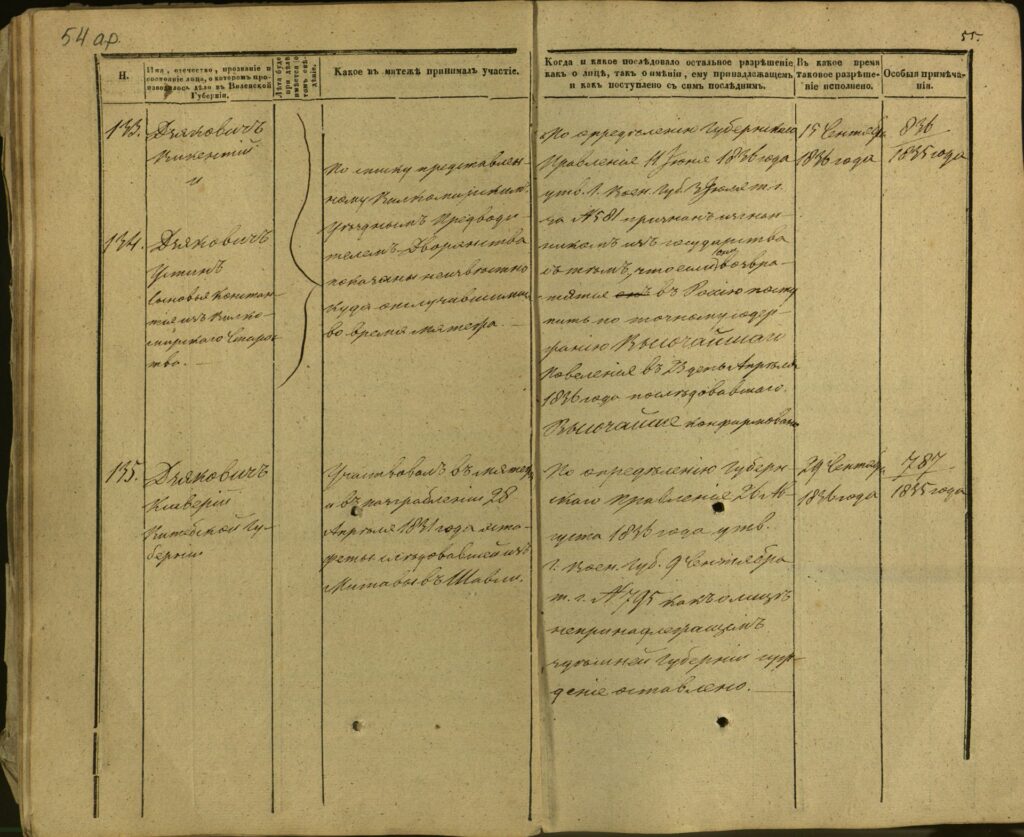 54 ар.
55.
Н.
Имя, отечество, прозваніе и
состояніе лица, о которомъ про-
изводилось дѣло въ Виленской
Губерніи.
Лѣта буде
при дѣлѣ
имѣются о
томъ свѣ-
дѣніе.
Какое въ мятежѣ принималъ участіе.
Когда и какое послѣдовало остальное разрѣшеніе
какъ о лицѣ, такъ о имѣніи, ему принадлежащемъ
и какъ поступлено съ симъ послѣднимъ.
Въ какое время
таковое разрѣше-
ніе исполнено.
Особыя примѣча-
нія.
133.
Дзяковичъ
Викентій
и
134.
Дзяковичъ
Устинъ
сыновья Констан-
тія изъ Вилко-
мирскаго Старос-
тва.
По списку представлен-
ному Вилкомирскимъ
Уѣзднымъ Предводи-
телемъ Дворянства
показаны неизвѣстно
куда отлучившимися
во время мятежа.
По опредѣленію Губернскаго
Правленія 11 Іюня 1836 года
утв. Г. Воен. Губ. 3 Іюля т. г.
за № 581 признан изгнан-
никомъ изъ государства
съ тѣмъ, что если возвра-
тятся въ Россію посту
пить по точному содер-
жанію Высочайшаго
Повеленія въ 23 день Апрѣля
1836 года послѣдовавшаго.
Высочайше конфирмовано
15 Сентября
1836 года
836
1835 года
135.
Дзяковичъ
Ксаверій
Витебской Гу-
берніи
Участвовалъ въ мятежѣ
и въ разграбленіи 28
Апрѣля 1831 года эста-
феты слѣдовавшей изъ
Митавы въ Шавли.
По опредѣленію Губерн-
скаго Правленія 26 Ав-
густа 1836 года утв.
Г. Воен. Губ. 9 Сентября
т. г. № 795 какъ о лицѣ
непринадлежащемъ
здѣшней Губерніи суж-
деніе оставлено.
29 Сентября
1836 года
787
1835 года